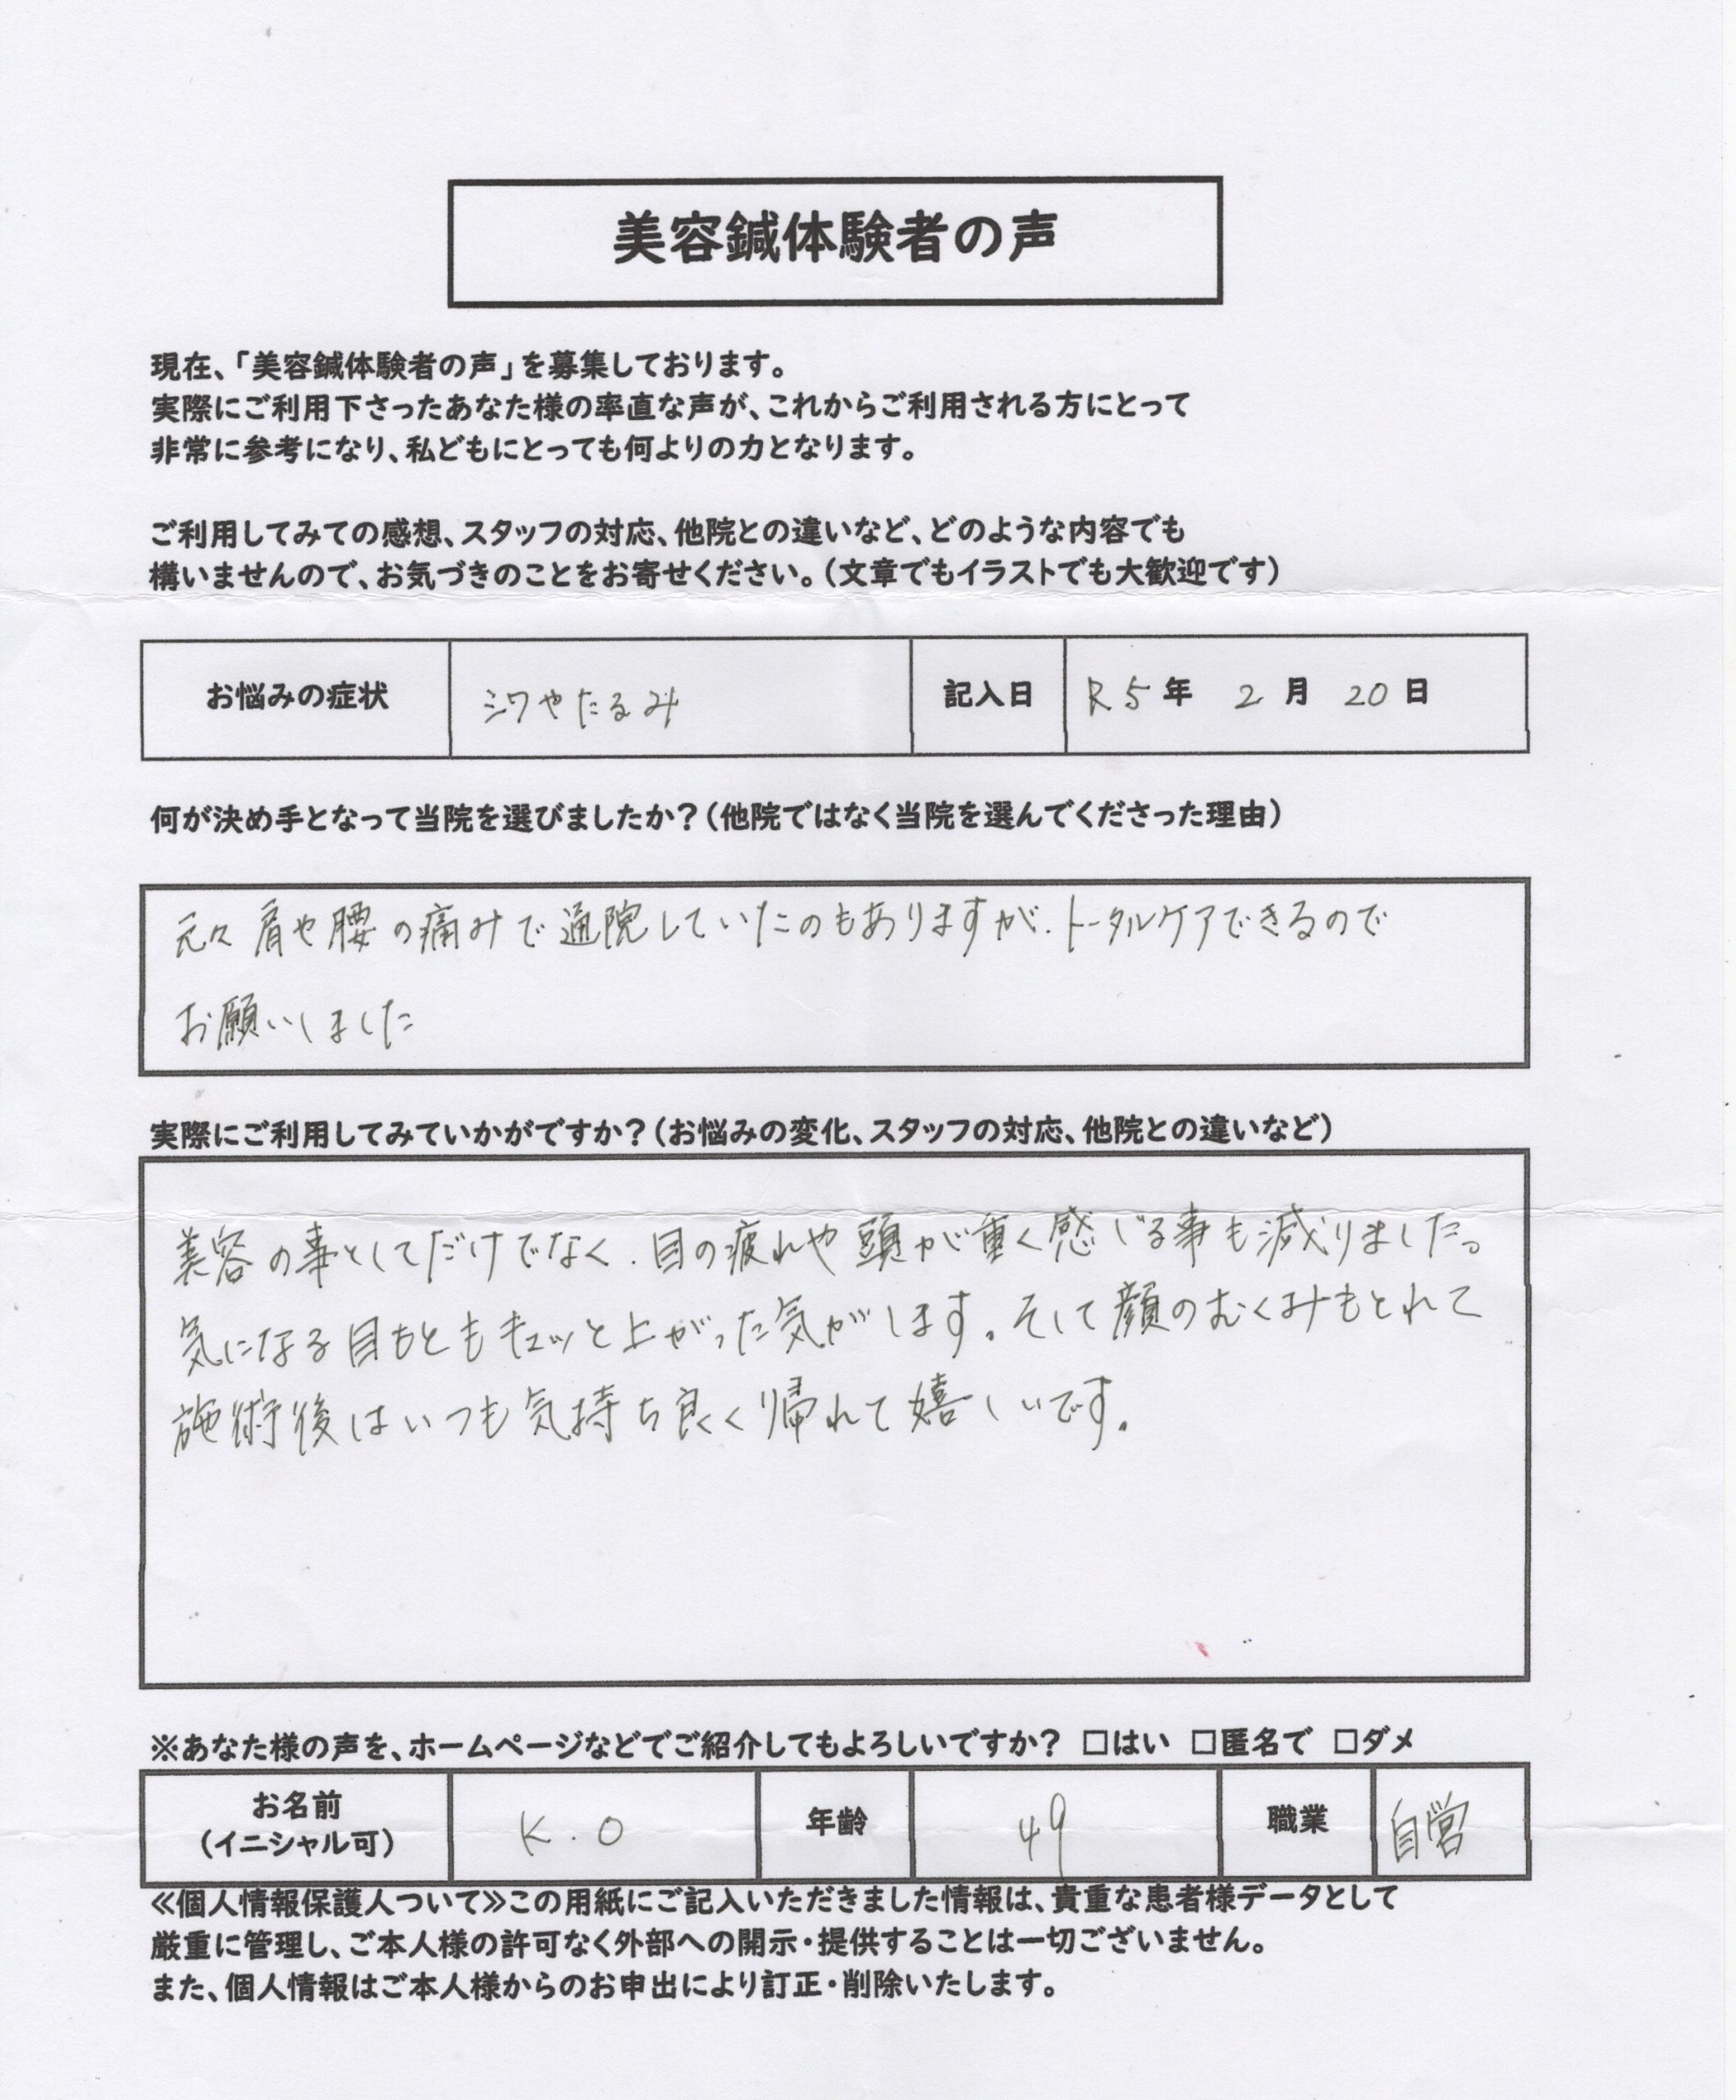 美容鍼体験者の声
現在、「美容鍼体験者の声」を募集しております。
実際にご利用下さったあなた様の率直な声が、これからご利用される方にとって
非常に参考になり、私どもにとっても何よりの力となります。
ご利用してみての感想、スタッフの対応、他院との違いなど、どのような内容でも
構いませんので、お気づきのことをお寄せください。（文章でもイラストでも大歓迎です）
お悩みの症状 シワやたるみ 記入日 R5年 2月 20日
何が決め手となって当院を選びましたか？（他院ではなく当院を選んでくださった理由）
元々肩や腰の痛みで通院していたのもありますが、トータルケアできるので
お願いしました
実際にご利用してみていかがですか？（お悩みの変化、スタッフの対応、他院との違いなど）
美容の事としてだけでなく、目の疲れや頭が重く感じる事も減りました。
気になる目もともキュッと上がった気がします。そして顔のむくみもとれて
施術後はいつも気持ち良く帰れて嬉しいです。
※あなた様の声を、ホームページなどでご紹介してもよろしいですか？ □はい □匿名で □ダメ
お名前
（イニシャル可） K.O 年齢 49 職業 自営
≪個人情報保護人ついて≫この用紙にご記入いただきました情報は、貴重な患者様データとして
厳重に管理し、ご本人様の許可なく外部への開示・提供することは一切ございません。
また、個人情報はご本人様からのお申出により訂正・削除いたします。